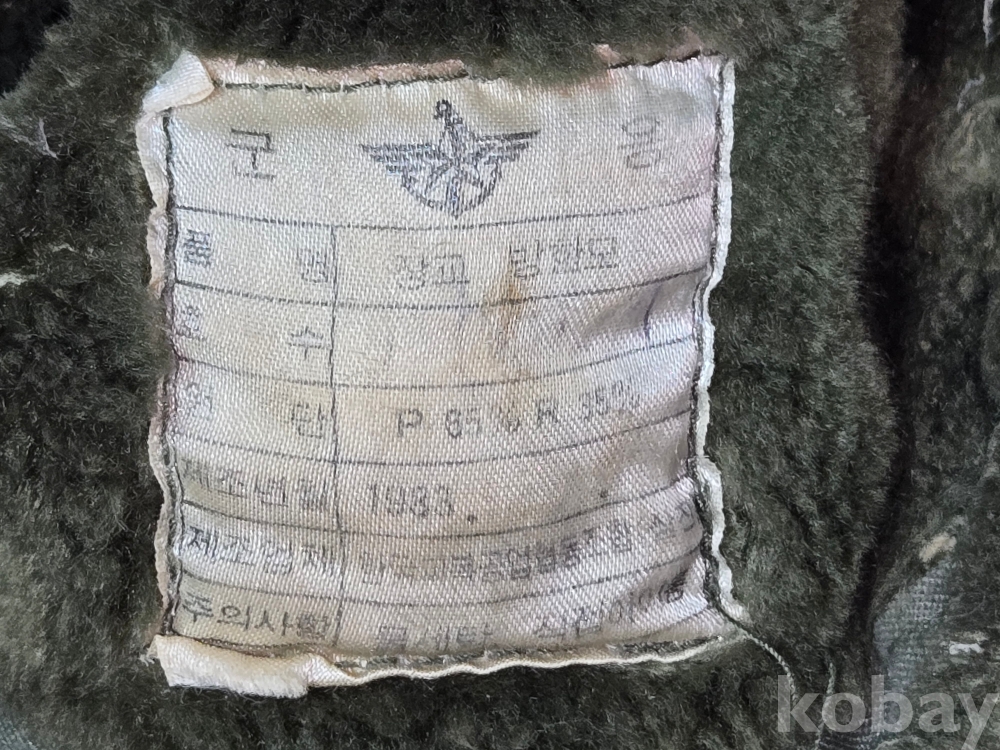 군 용
품 명 장교 방한모
호 수
원 단 P 65% R 35%
제조년월 1983.
제조업체
주의사항 물세탁
kobay